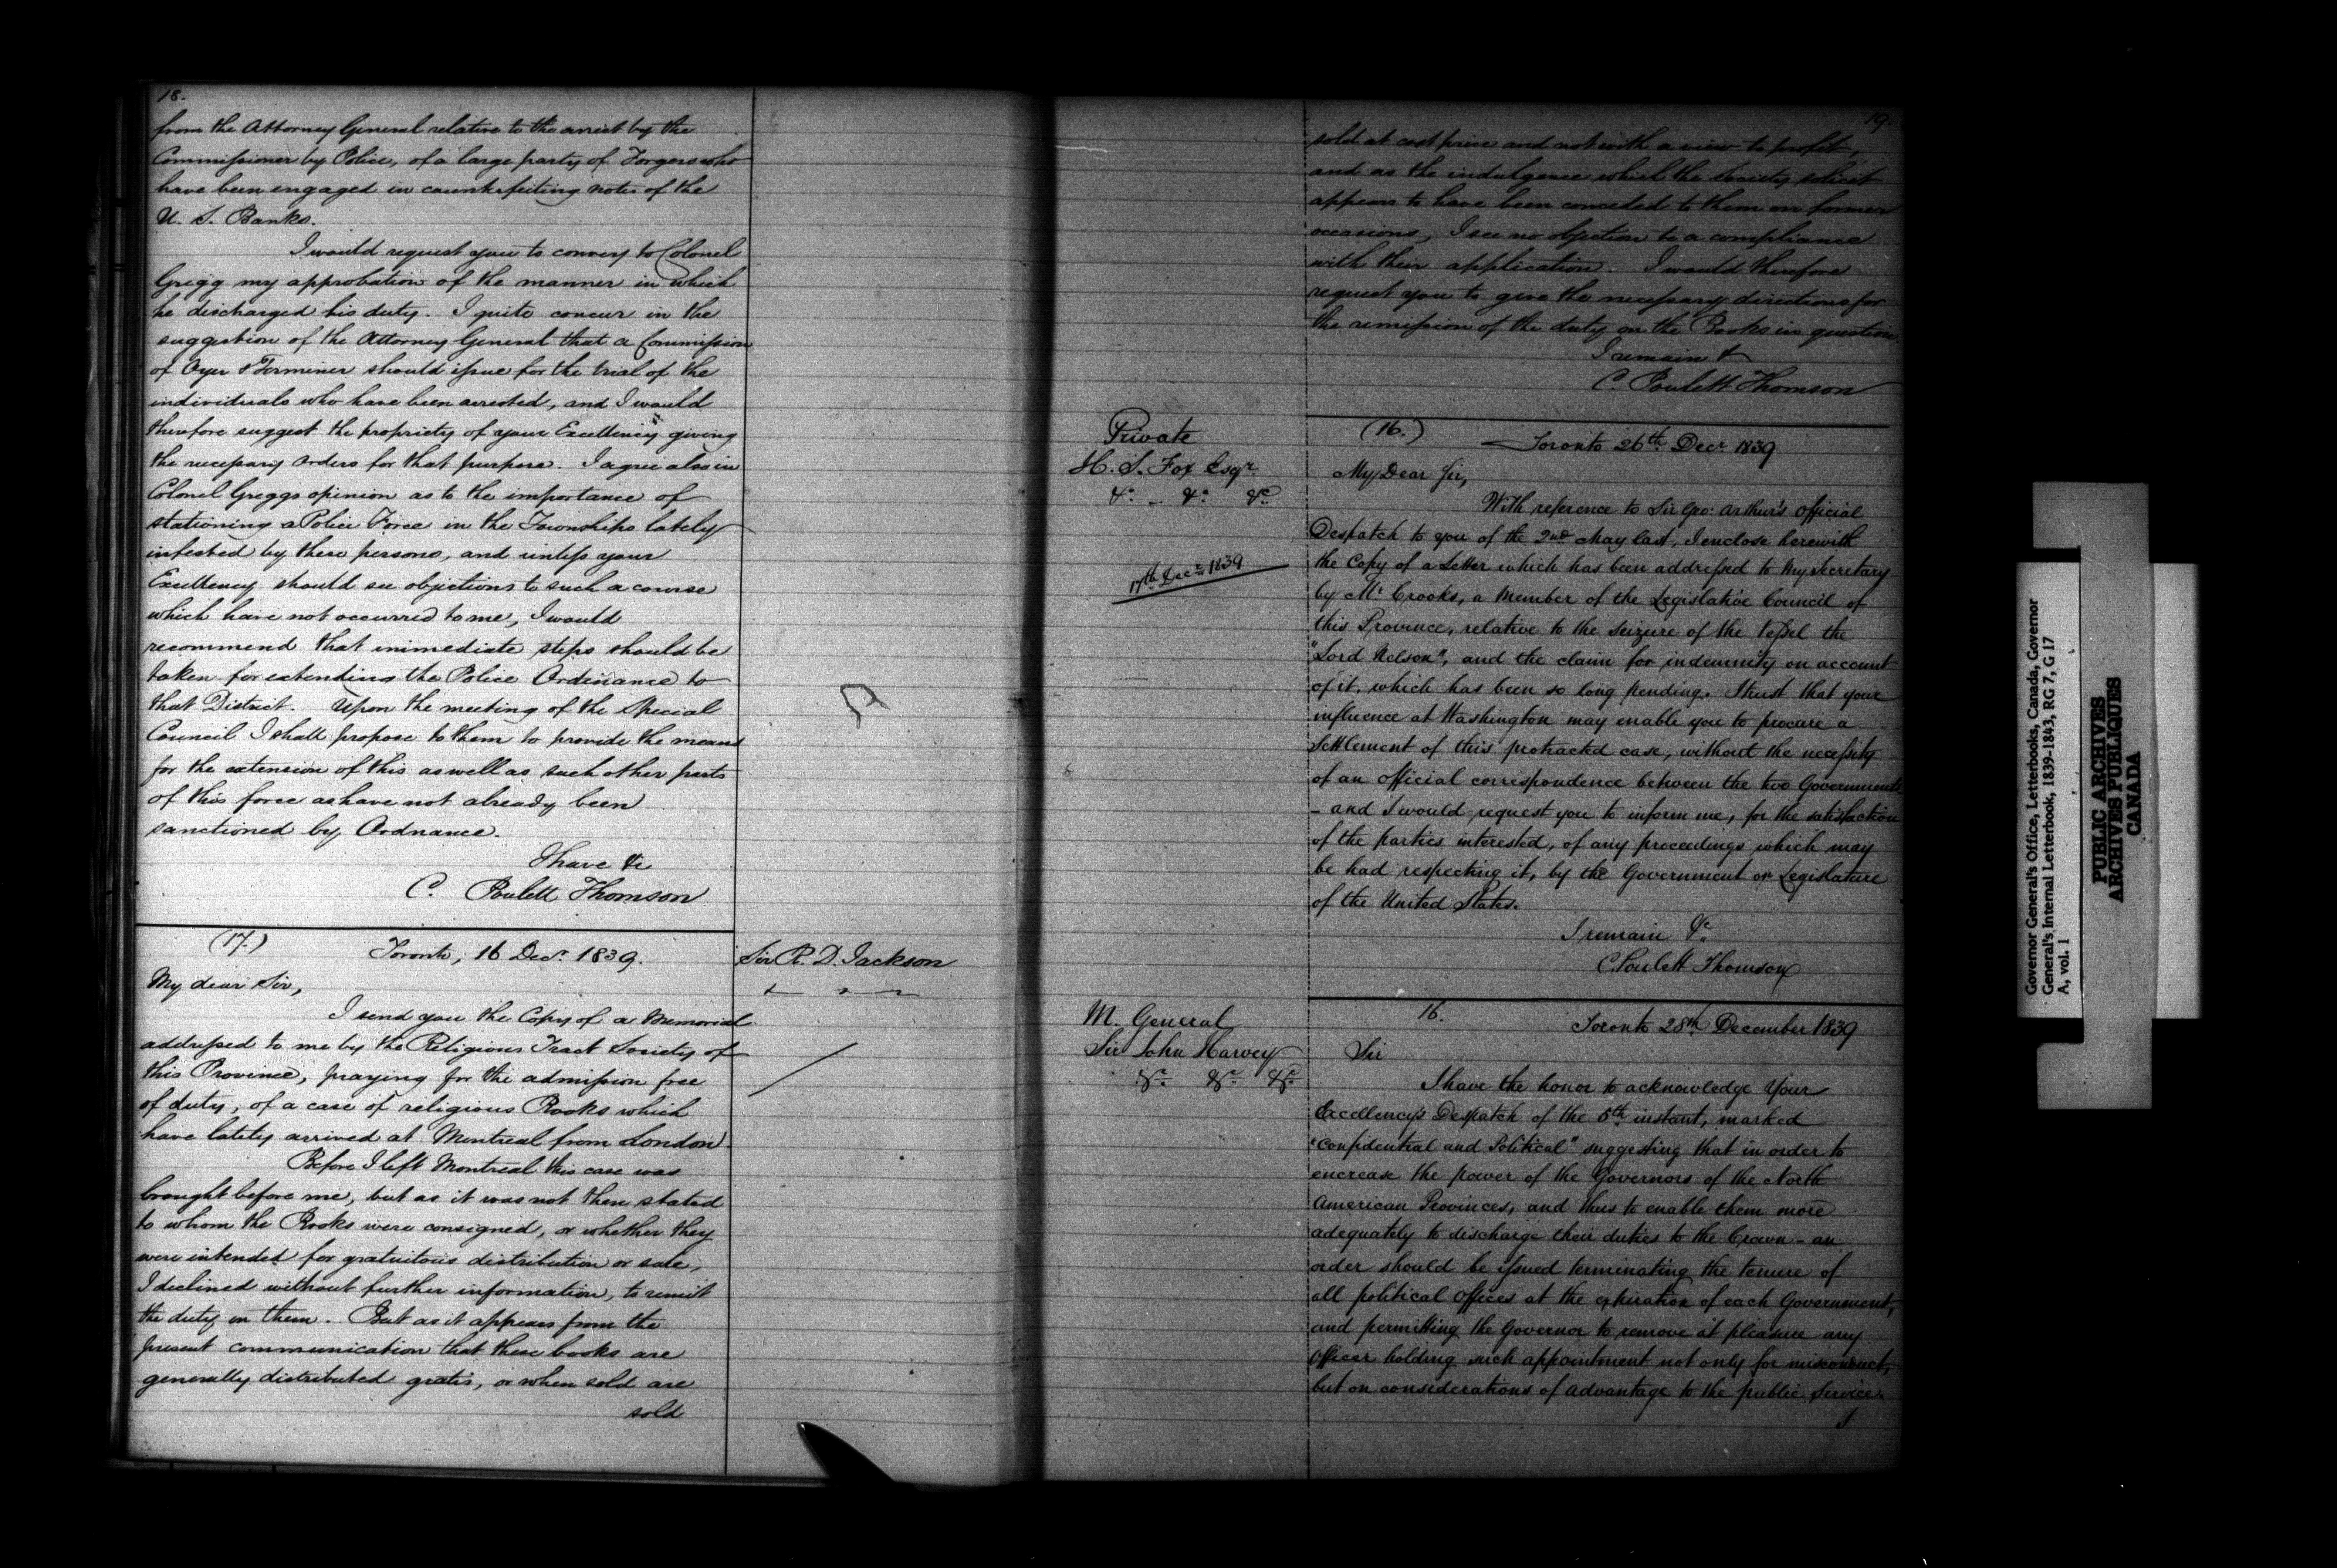 18.
from the Attorney General relative to the arrest by the
Commissioner by Police, of a large party of Forgers who
have been engaged in counterfeiting notes of the
U. S. Banks.
I would request you to convey to Colonel
Gregg my approbation of the manner in which
he discharged his duty. I quite concur in the
suggestion of the Attorney General that a Commission
of Oyer & Terminer should issue for the trial of the
individuals who have been arrested, and I would
therefore suggest the propriety of your Excellency's giving
the necessary orders for that purpose. I agree also in
Colonel Greggs opinion as to the importance of
stationing a Police Force in the Townships lately
infested by these persons, and unless your
Excellency should see objections to such a course
which have not occurred to me, I would
recommend that immediate steps should be
taken for extending the Police Ordinance to
that District. Upon the meeting of the Special
Council I shall propose to them to provide the means
for the extension of this as well as such other parts
of this force as have not already been
sanctioned by Ordnance.
I have &c
C. Poulett Thomson
(17.)
Toronto, 16 Decr. 1839.
Sir R. D. Jackson
My dear Sir,
I send you the Copy of a Memorial
addressed to me by the Religious Tract Society of
this Province, praying for the admission free
of duty, of a case of religious Books which
have lately arrived at Montreal from London.
Before I left Montreal this case was
brought before me, but as it was not then stated
to whom the Books were consigned, or whether they
were intended for gratuitous distribution or sale,
I declined without further information, to remit
the duty on them. But as it appears from the
present communication that these books are
generally distributed gratis, or when sold are
sold
19.
sold at cost price and not with a view to profit,
and as the indulgence which the Society solicit
appears to have been conceded to them on former
occasions, I see no objection to a compliance
with their application. I would therefore
request you to give the necessary directions for
the remission of the duty on the Books in question
I remain &
C. Poulett Thomson
Private
H. S. Fox Esqr.
&c. &c. &c.
17th Decr. 1839
(16.)
Toronto 26th Decr. 1839
My Dear Sir,
With reference to Sir Geo: Arthur's official
Despatch to you of the 2nd May last, I enclose herewith
the Copy of a Letter which has been addressed to My Secretary
by Mr. Crooks, a Member of the Legislative Council of
this Province, relative to the seizure of the Vessel the
"Lord Nelson", and the claim for indemnity on account
of it, which has been so long pending. I trust that your
influence at Washington may enable you to procure a
Settlement of this protracted case, without the necessity
of an official correspondence between the two Governments
– and I would request you to inform me, for the satisfaction
of the parties interested, of any proceedings which may
be had respecting it, by the Government or Legislature
of the United States.
I remain &c.
C. Poulett Thomson
M. General
Sir John Harvey
&c. &c. &c.
16.
Toronto 28th December 1839
Sir
I have the honor to acknowledge Your
Excellency's Despatch of the 5th instant, marked
"Confidential and Political" suggesting that in order to
encrease the power of the Governors of the North
American Provinces, and thus to enable them more
adequately to discharge their duties to the Crown – an
order should be issued terminating the tenure of
all political Offices at the expiration of each Government,
and permitting the Governor to remove at pleasure any
Officer holding such appointment not only for misconduct,
but on considerations of advantage to the public Service.
I
Governor General's Office, Letterbooks, Canada, Governor
General's Internal Letterbook, 1839-1843, RG 7, G 17
A, vol. 1
PUBLIC ARCHIVES
ARCHIVES PUBLIQUES
CANADA